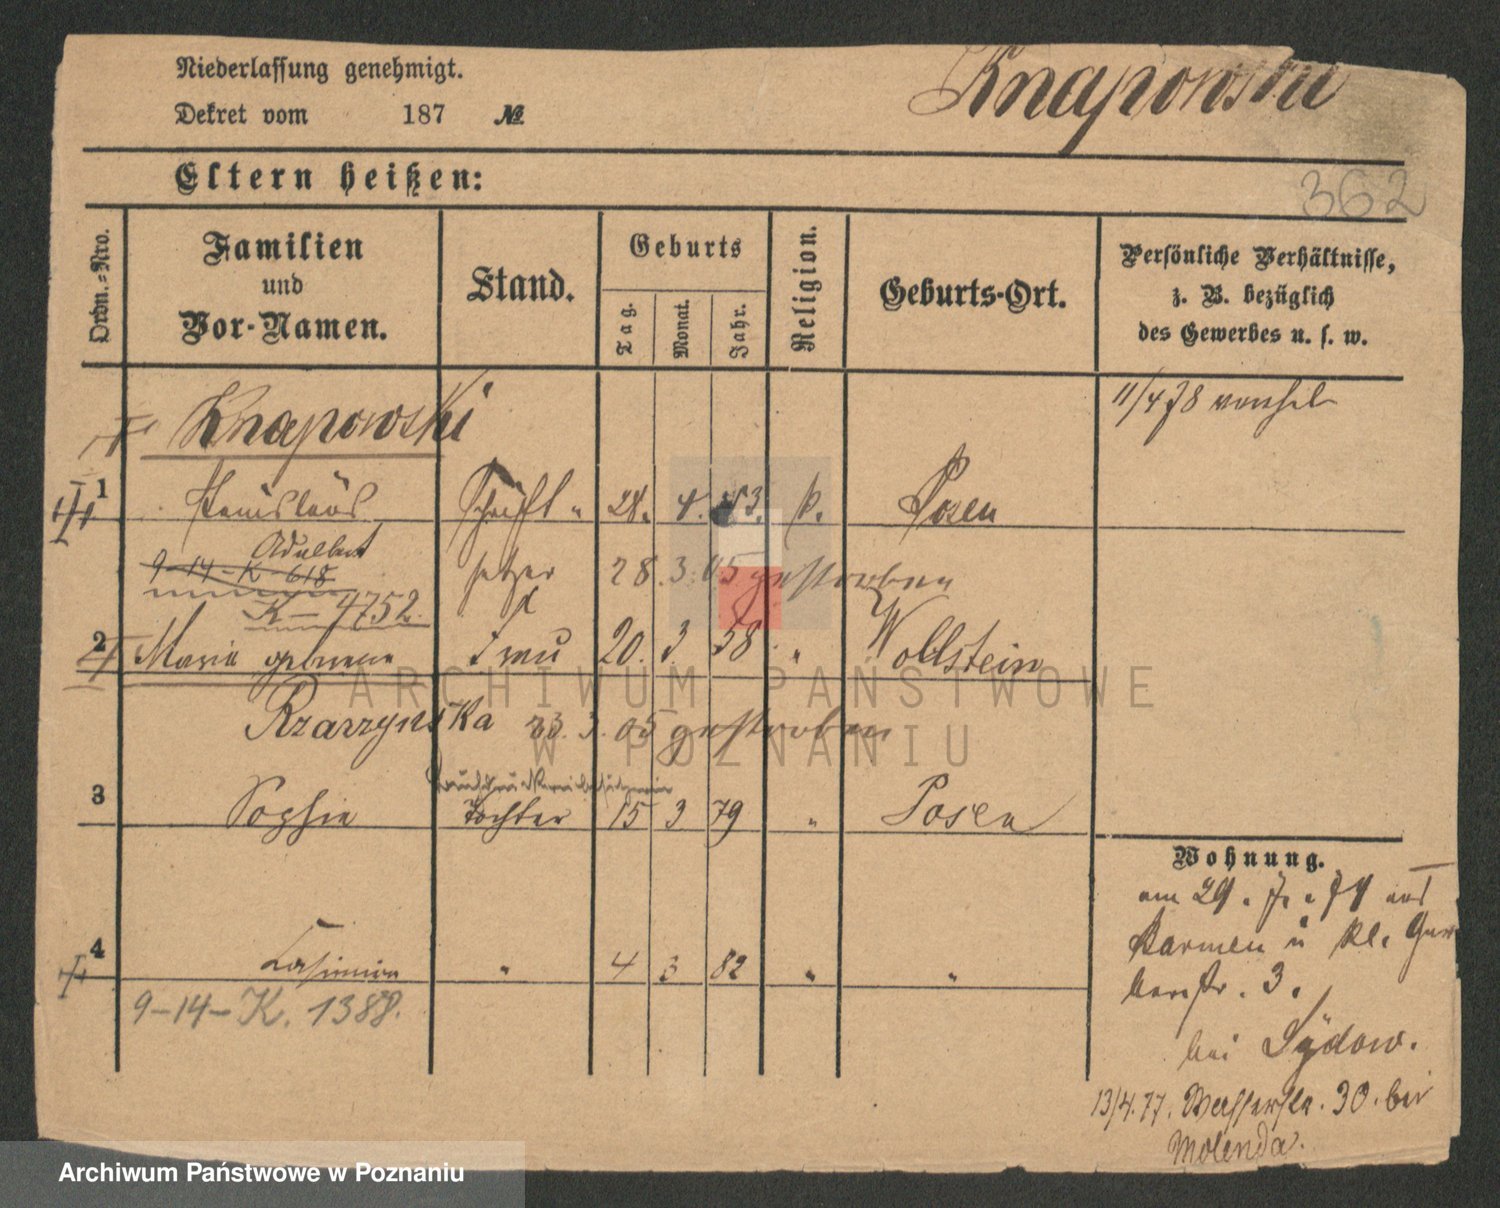 Niederlassung genehmigt.
Knapowski
Dekret vom 187 №
Eltern heißen:
362
Ordn.-Nro.
Familien und Vor-Namen.
Stand.
Geburts
Tag. Monat. Jahr.
Religion.
Geburts-Ort.
Persönliche Verhältnisse,
z. B. bezüglich
des Gewerbes u. s. w.
11/4 78
Knapowski
1 Stanislaus Schrift- 24. 4. 53. k. Posen
Adalbert
9-14-K-618 setzer 28. 3. 05 gestorben
K-4752.
2 Maria geborene Frau 20. 3 58 " Wollstein
Rzarzynska 23. 3. 05 gestorben
3 Sophie Tochter 15 3 79 " Posen
Wohnung.
am 29. 7. 74 aus
Barmen n kl. Ger
berstr. 3.
bei Sydow.
4 Casimira " 4 3 82 " "
9-14-K. 1388.
13/4. 77. Wasserstr. 30. bei
Molenda.
ARCHIWUM PAŃSTWOWE
W POZNANIU
Archiwum Państwowe w Poznaniu